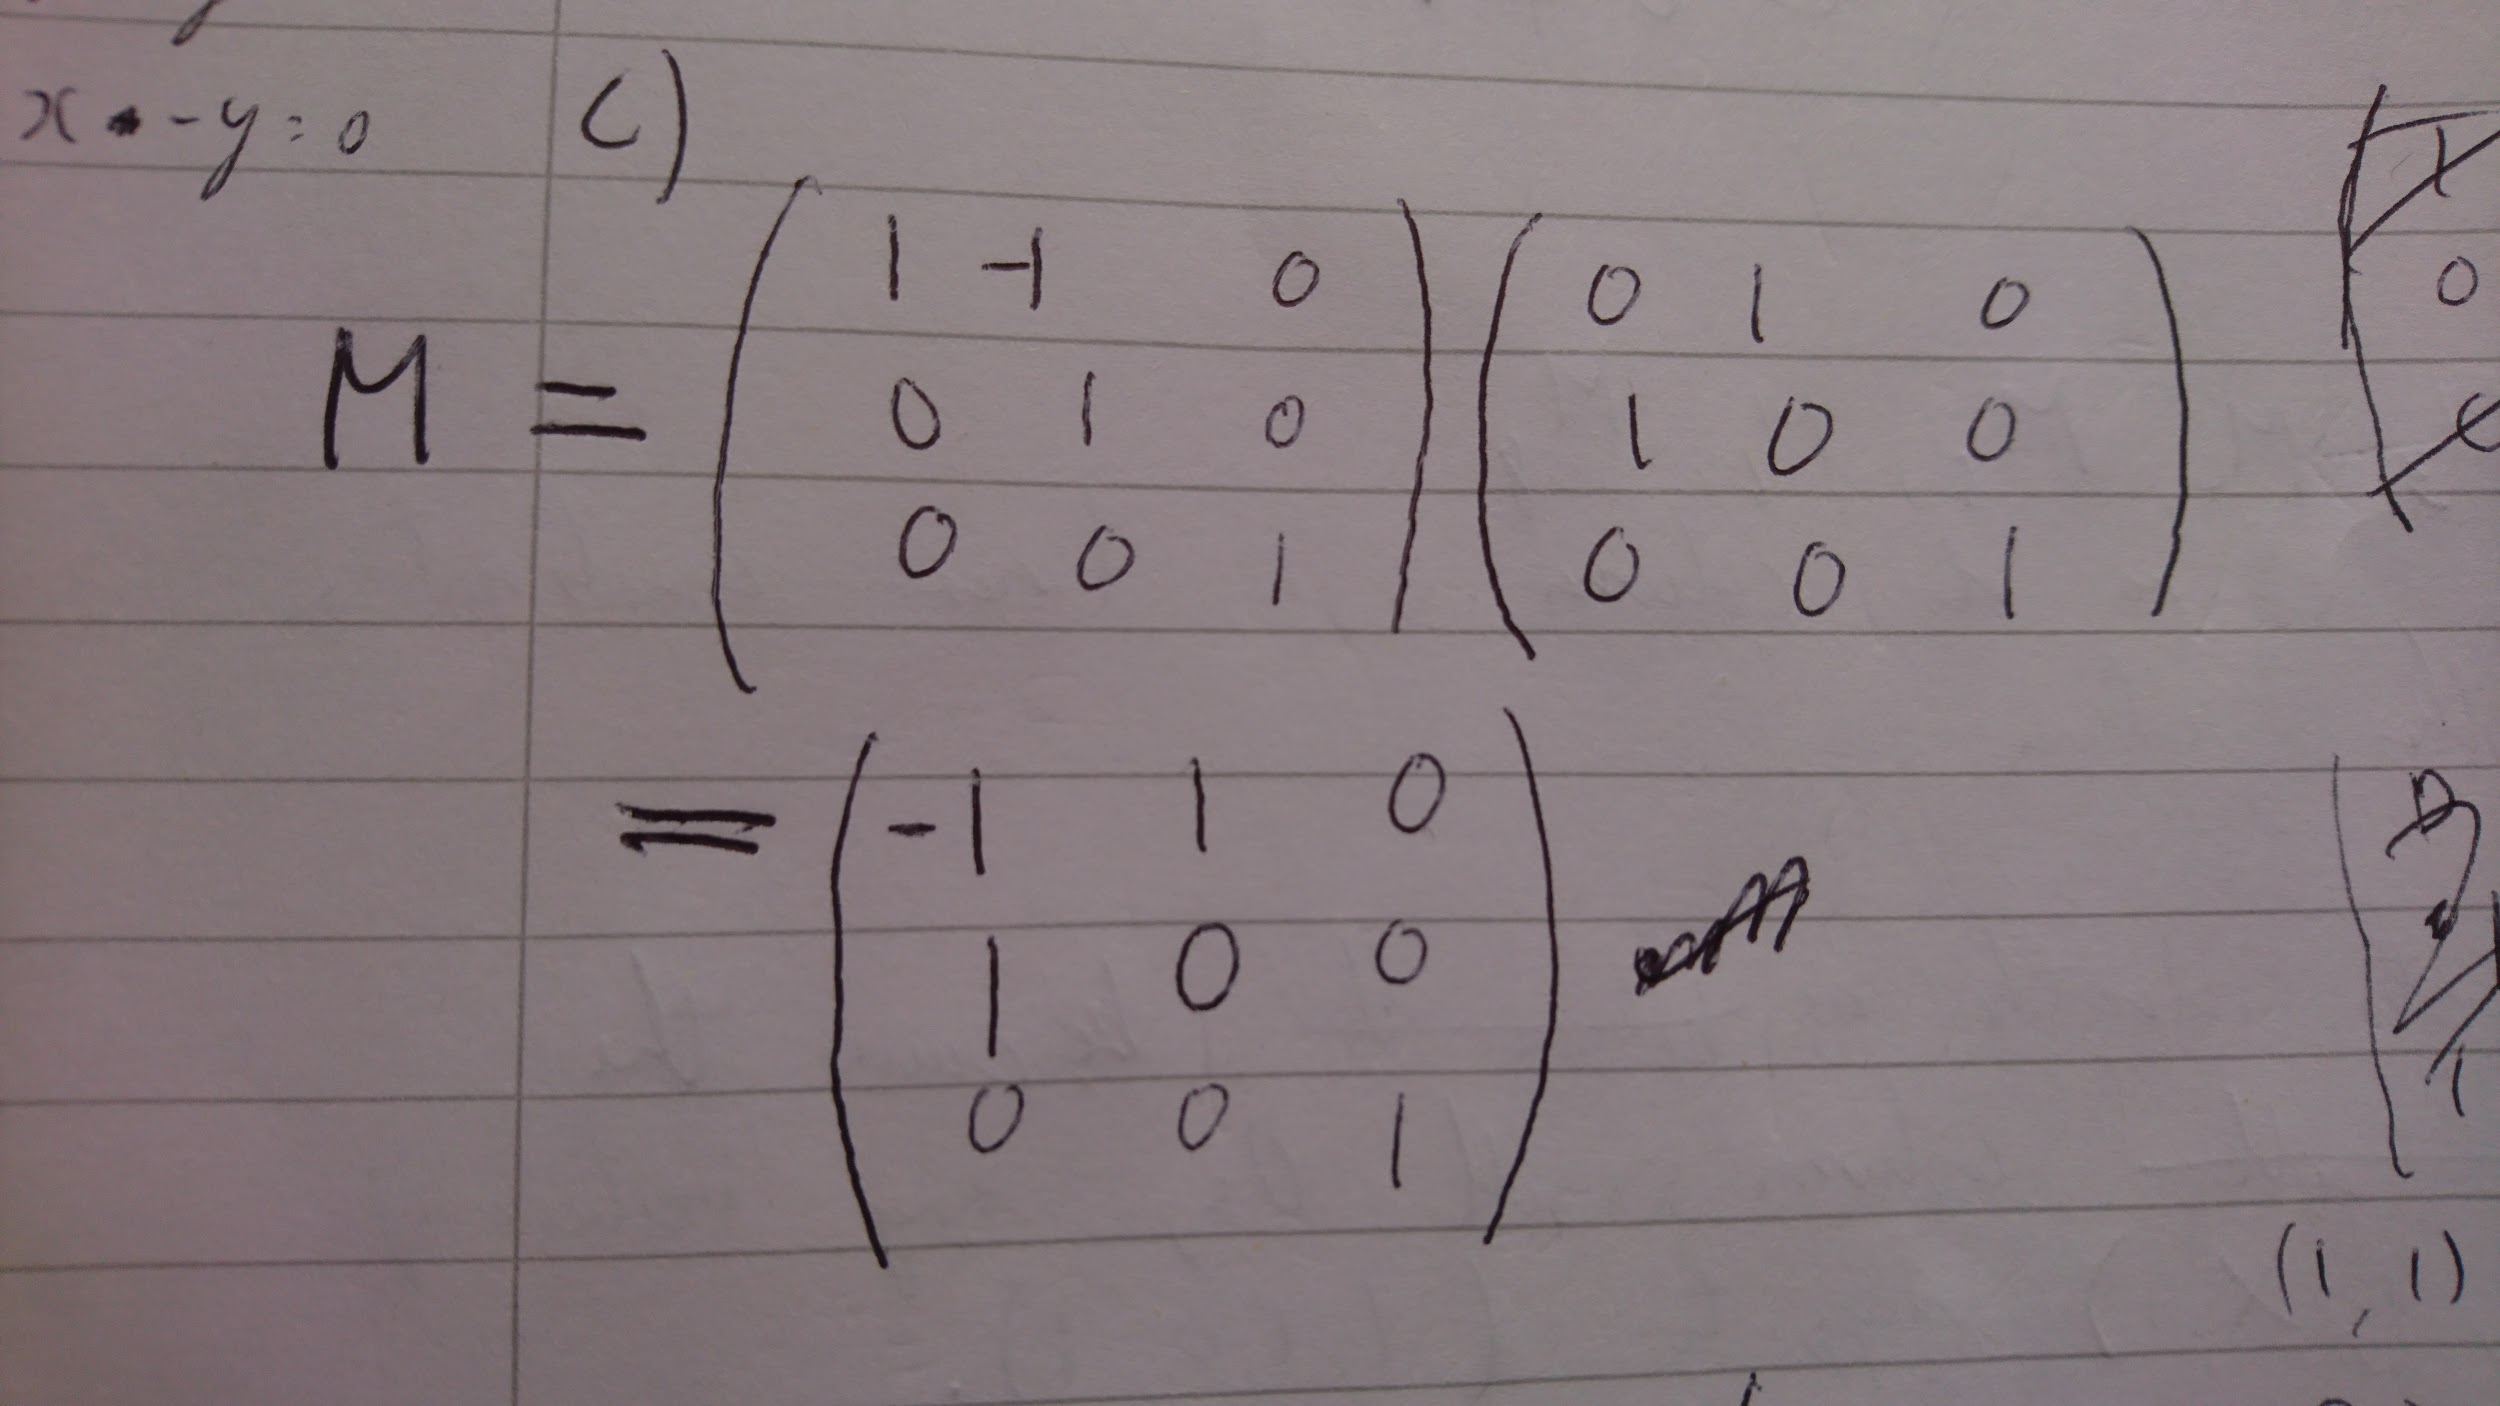 x - y = 0
c)
M = ( 1 -1 0 ) ( 0 1 0 )
( 0 1 0 ) ( 1 0 0 ) 0
( 0 0 1 ) ( 0 0 1 )
= ( -1 1 0 )
( 1 0 0 )
( 0 0 1 ) 1
(1, 1)